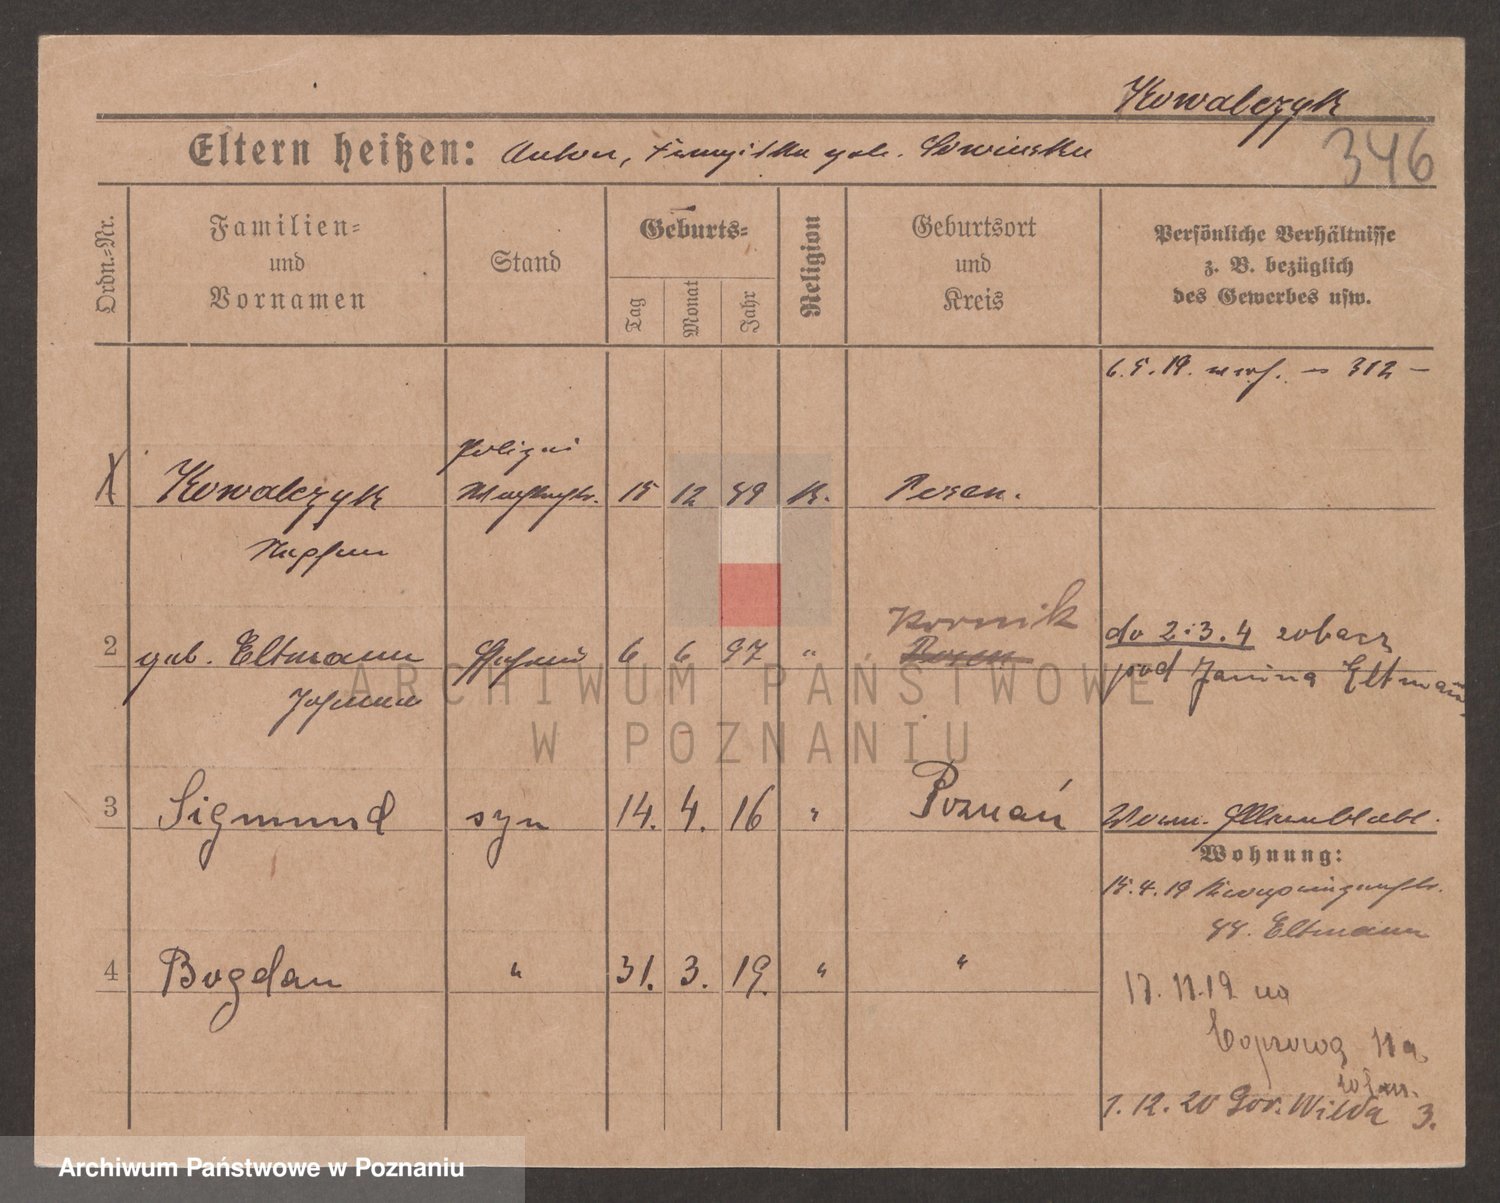 Kowalczyk
346
Eltern heißen: Anton, geb.
Ordn.-Nr.
Familien-
und
Vornamen
Stand
Geburts-
Tag
Monat
Jahr
Religion
Geburtsort
und
Kreis
Persönliche Verhältnisse
z. B. bezüglich
des Gewerbes usw.
6.5.19. 312 –
Polizei
Kowalczyk 15 12 89 K. Posen.
Kornik
2 geb. Eltmann 6 6 97 " Posen
do 2.3.4 zobacz
pod Janina Eltmann
Johanna
3 Sigmund syn 14. 4. 16 " Poznań
Wohnung:
15.4.19
Eltmann
4 Bogdan " 31. 3. 19. " "
17.11.19 na
11a
1.12.20 Gór. Wilda 3.
ARCHIWUM PAŃSTWOWE
W POZNANIU
Archiwum Państwowe w Poznaniu